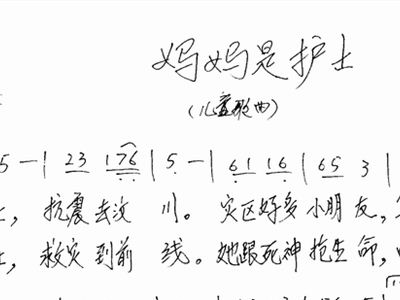 妈妈是护士
(儿童歌曲)
5 – | 23 176 | 5 – | 61 16 | 65 3 |
抗震去汶 川。 灾区好多 小朋 友,
, 救灾 到前 线。 她跟死神 抢生 命,